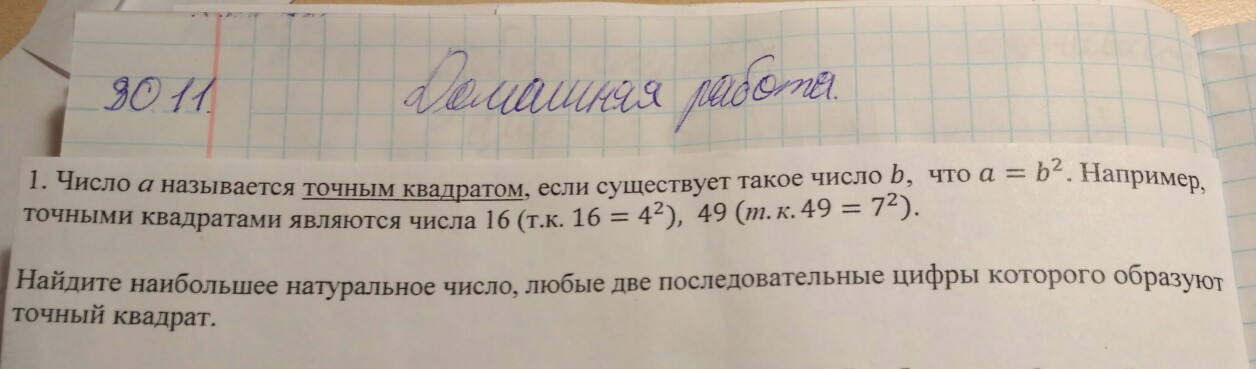 30.11.
Домашняя работа.
1. Число a называется точным квадратом, если существует такое число b, что a = b². Например,
точными квадратами являются числа 16 (т.к. 16 = 4²), 49 (т.к. 49 = 7²).
Найдите наибольшее натуральное число, любые две последовательные цифры которого образуют
точный квадрат.